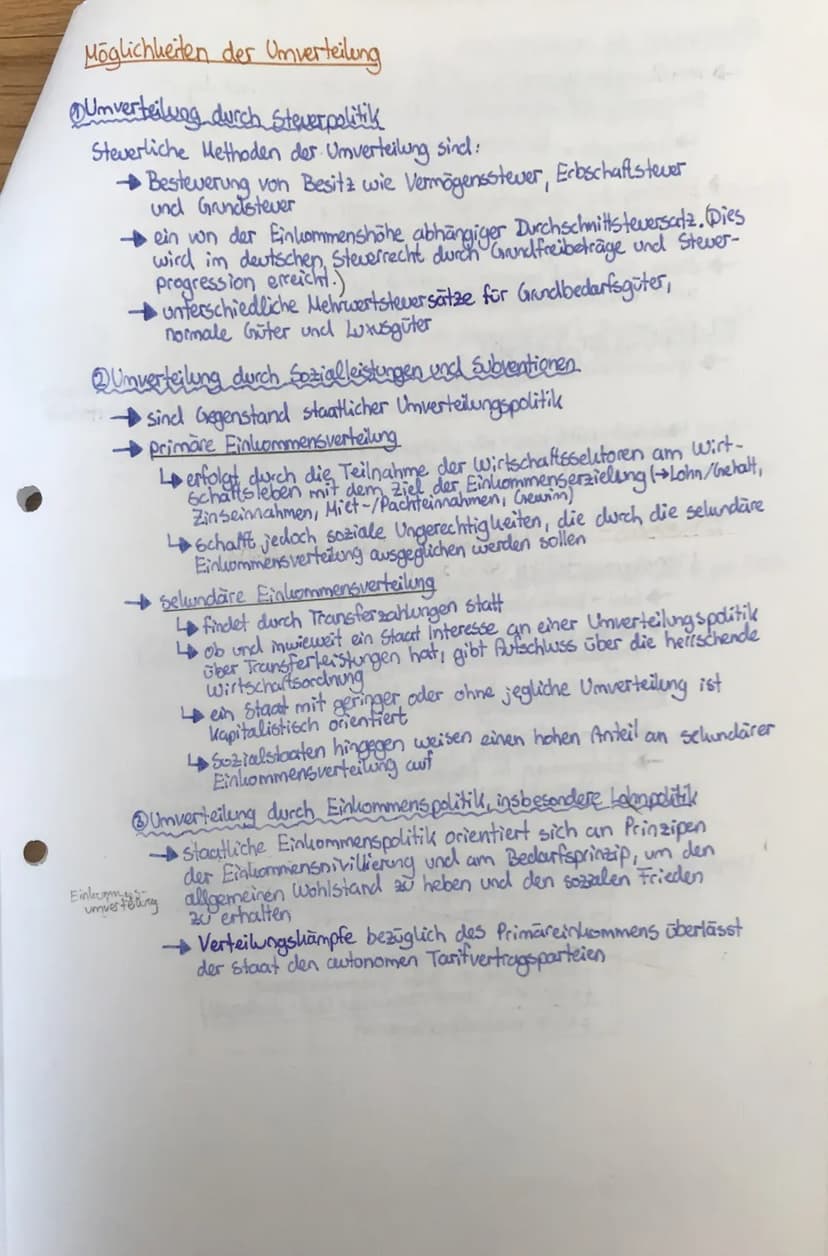 Möglichkeiten der Umverteilung
① Umverteilung durch Steuerpolitik
Steuerliche Methoden der Umverteilung sind:
→ Besteuerung von Besitz wie Vermögenssteuer, Erbschaftsteuer
und Grundsteuer
→ ein von der Einkommenshöhe abhängiger Durchschnittsteuersatz. (Dies
wird im deutschen Steuerrecht durch Grundfreibeträge und Steuer-
progression erreicht.)
→ unterschiedliche Mehrwertsteuersätze für Grundbedarfsgüter,
normale Güter und Luxusgüter
② Umverteilung durch Sozialleistungen und Subventionen
→ sind Gegenstand staatlicher Umverteilungspolitik
→ primäre Einkommensverteilung
↳ erfolgt durch die Teilnahme der Wirtschaftssektoren am Wirt-
schaftsleben mit dem Ziel der Einkommenserzielung (→ Lohn/Gehalt,
Zinseinnahmen, Miet-/Pachteinnahmen, Gewinn)
↳ schafft jedoch soziale Ungerechtigkeiten, die durch die sekundäre
Einkommensverteilung ausgeglichen werden sollen
→ sekundäre Einkommensverteilung
↳ findet durch Transferzahlungen statt
↳ ob und inwieweit ein Staat Interesse an einer Umverteilungspolitik
über Transferleistungen hat, gibt Aufschluss über die herrschende
Wirtschaftsordnung
↳ ein Staat mit geringer oder ohne jegliche Umverteilung ist
kapitalistisch orientiert
↳ Sozialstaaten hingegen weisen einen hohen Anteil an sekundärer
Einkommensverteilung auf
③ Umverteilung durch Einkommenspolitik, insbesondere Lohnpolitik
→ staatliche Einkommenspolitik orientiert sich an Prinzipen
der Einkommensnivillierung und am Bedarfsprinzip, um den
allgemeinen Wohlstand zu heben und den sozialen Frieden
zu erhalten
Einkommens-
umverteilung
→ Verteilungskämpfe bezüglich des Primäreinkommens überlässt
der Staat den autonomen Tarifvertragsparteien